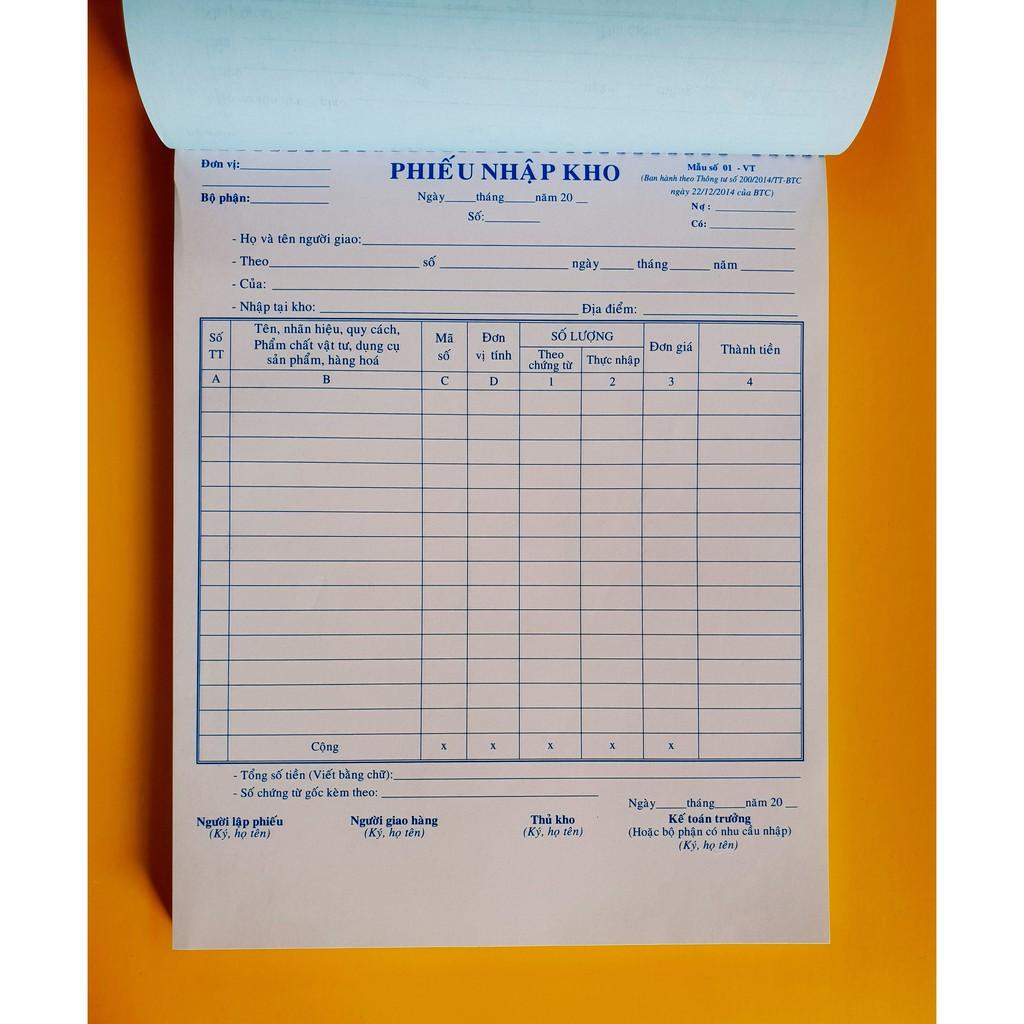 Đơn vị:
PHIẾU NHẬP KHO
Mẫu số 01 - VT
(Ban hành theo Thông tư số 200/2014/TT-BTC
ngày 22/12/2014 của BTC)
Bộ phận:
Ngày_____tháng_____năm 20 __
Số:
Nợ :
Có:
- Họ và tên người giao:
- Theo________ số ________ ngày_____ tháng______ năm ________
- Của:
- Nhập tại kho: ________ Địa điểm: ________
Số TT
Tên, nhãn hiệu, quy cách,
Phẩm chất vật tư, dụng cụ
sản phẩm, hàng hoá
Mã số
Đơn vị tính
SỐ LƯỢNG
Theo chứng từ
Thực nhập
Đơn giá
Thành tiền
A B C D 1 2 3 4
Cộng x x x x x
- Tổng số tiền (Viết bằng chữ):
- Số chứng từ gốc kèm theo:
Ngày_____tháng_____năm 20 __
Người lập phiếu
(Ký, họ tên)
Người giao hàng
(Ký, họ tên)
Thủ kho
(Ký, họ tên)
Kế toán trưởng
(Hoặc bộ phận có nhu cầu nhập)
(Ký, họ tên)